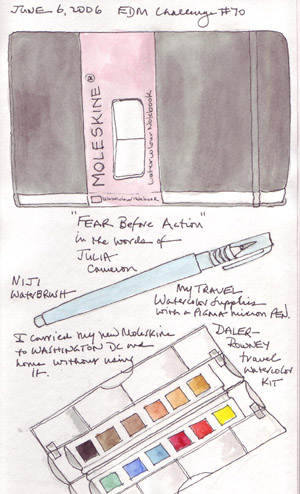 JUNE 6, 2006 EDM Challenge #70
MOLESKINE®
Watercolour Notebook
Watercolour Notebook
"FEAR Before Action"
in the words of
JULIA
Cameron
NIJI
WATERBRUSH
MY TRAVEL
Watercolor Supplies
with a PIGMA micron PEN.
I carried my new Moleskine
to WASHINGTON DC and
home without using
it.
DALER-
ROWNEY
travel
Watercolor
KIT